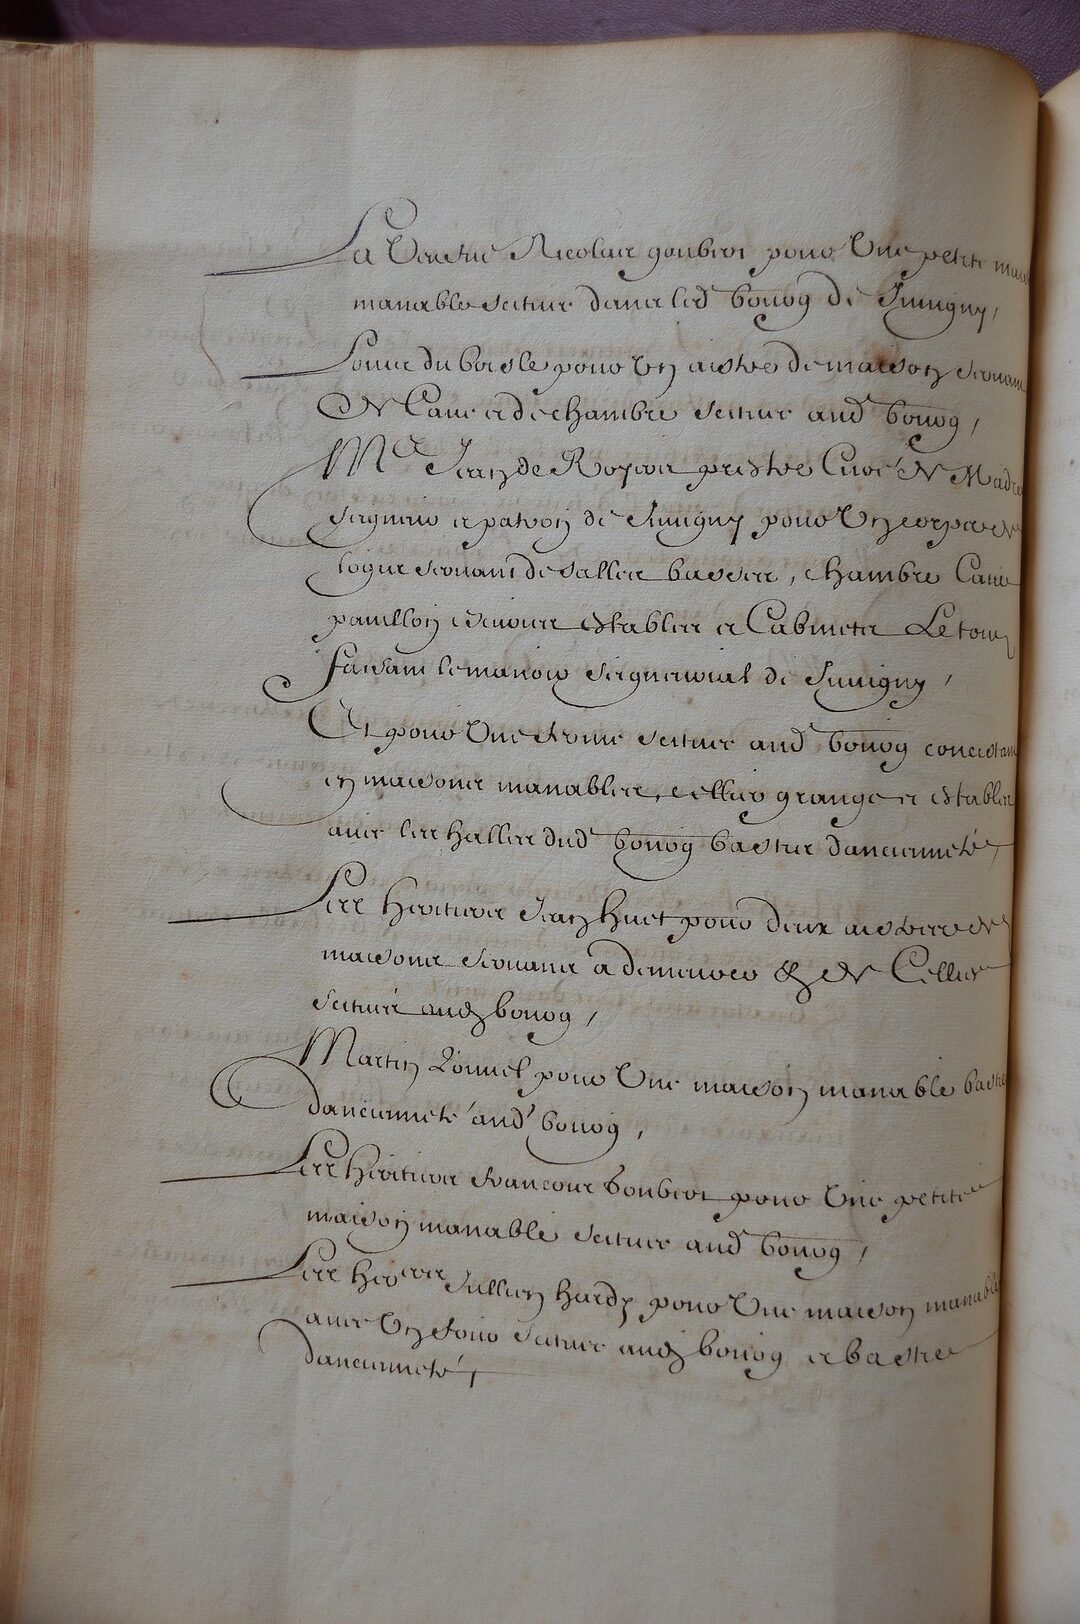 La Veufve Nicolas goubert pour Une petite
manable scituee dans led bourg de Juvigny,
pour Un aistre de maison servant
De Cave et de chambre scituee aud bourg,
Me Jean de prestre Curé De
seigneur et patron de Juvigny pour Un corps de
logis servant de salles basses, chambre Cave
pavillon establer et Cabinets Le tout
faisant le manoir seigneurial de Juvigny,
Et pour Une ferme scituee aud bourg concistant
en maisons manables, cellier grange et establer
avec les halles dud bourg bastie d'ancienneté,
Les heritiers Jean huet pour deux aistres de
maisons servants a demeurer & de Cellier
scitués aud bourg,
Martin pour Une maison manable bastie
d'ancienneté aud bourg,
Les heritiers francois goubert pour Une petite
maison manable scituee aud bourg,
Les heriers Jullien hardy pour Une maison manable
avec Un four scituee aud bourg et bastie
d'ancienneté,